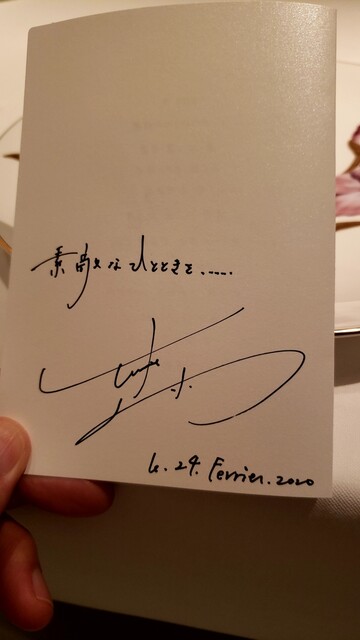 素敵なひとときを......
le. 29. Fevrier. 2020